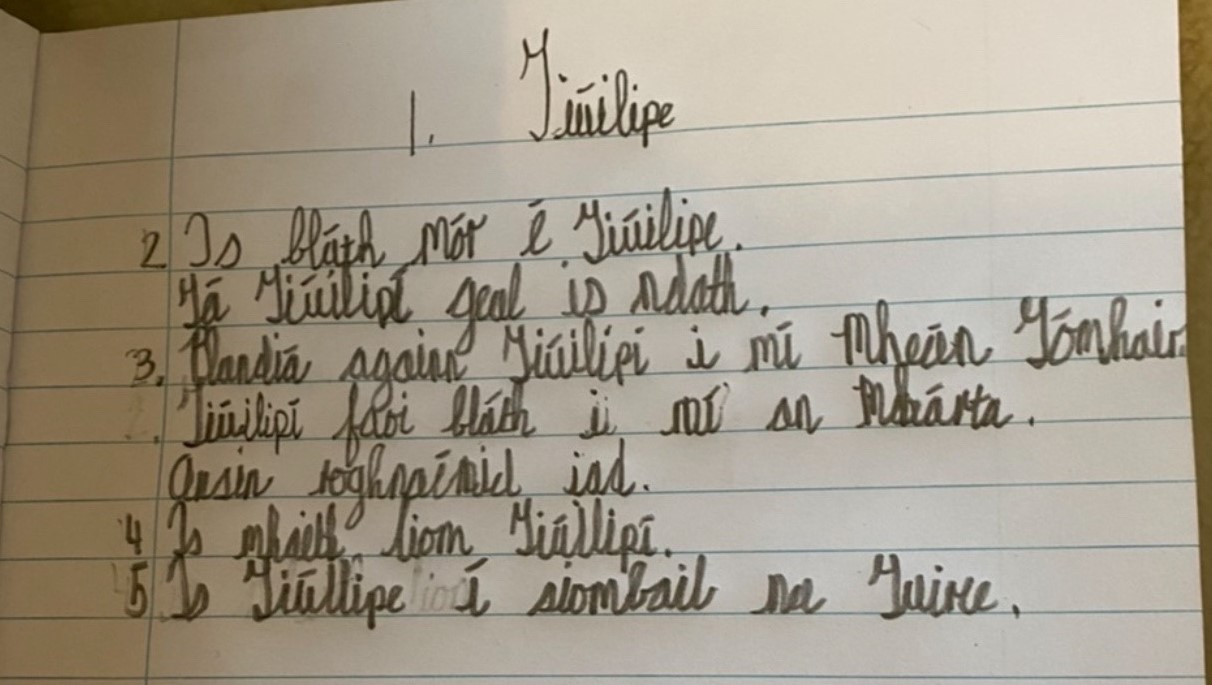 1. Tiúilipe
2 Is bláth mór é Tiúilipe.
Tá Tiúilipí geal is ndath.
3. Plandiá againn Tiúilipí i mí Mheán Fómhair.
Tiúilipí faoi bláth i mí an Mhárta.
Ansin roghnaímid iad.
4 Is mhaith liom Tiúillipí.
5 Is Tiúllipe í siombail na Tuirce.